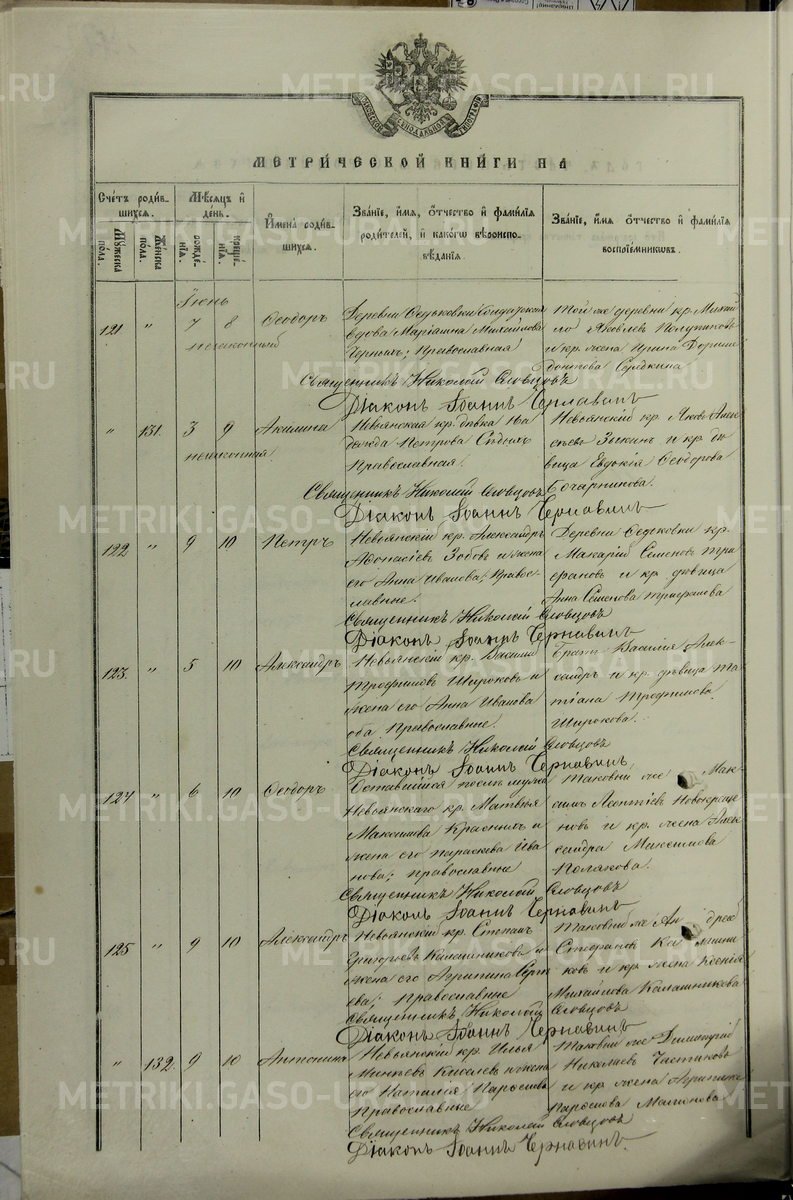 МЕТРИ́ЧЕСКОЙ КНИ́ГИ НА
Сче́тъ роди́в-
шихся.
Му́жеска
по́ла.
Же́нска
по́ла.
Мѣ́сяцъ и҆
де́нь.
рожде́-
нїѧ.
креще́-
нїѧ.
И҆мена̀ роди́в-
шихся.
Зва́нїе, и҆́мя, ѻ҆́тчество и҆ фами́лїя
роди́телей, и҆ како́гѡ вѣроиспо-
вѣ́данїя.
Зва́нїе, и҆́мя ѻ҆́тчество и҆ фами́лїя
воспрїе́мникѡвъ.
Іюнь
121 " 7 8 Ѳеодоръ
незаконный
Деревни Ѳедьковки
вдова Маріанна Михайлова
Черныхъ; Православная
Той же деревни кр. Михаи
ло Яковлевъ
и кр. жена Ирина
Середкина
Священникъ Николай Словцовъ
Діаконъ Іоаннъ Чернавинъ
" 131. 3 9 Акилина
незаконная
Невьянская кр. дѣвка На
дежда Петрова Сѣдыхъ
Православная.
Невьянскій кр. Яковъ Алек
сѣевъ Зыкинъ и кр. дѣ
вица Евдокія Ѳеодорова
Бочарникова.
Священникъ Николай Словцовъ
Діаконъ Іоаннъ Чернавинъ
122 " 9 10 Петръ
Невьянскій кр. Александръ
Аѳонасіевъ Зобовъ и жена
его Анна Иванова; Правос-
лавные.
Деревни Ѳедьковки кр.
Макарій Семеновъ
и кр. дѣвица
Анна Семенова
Священникъ Николай Словцовъ
Діаконъ Іоаннъ Чернавинъ
123. " 5 10 Александръ
Невьянскій кр. Василій
Трофимовъ Широковъ и
жена его Анна Иванова
оба Православные.
Братъ Василія Алек-
сандръ и кр. дѣвица Та
тіана Трофимова
Широкова.
Священникъ Николай Словцовъ
Діаконъ Іоаннъ Чернавинъ
124 " 6 10 Ѳеодоръ
Оставшійся послѣ мужа
Невьянскаго кр. Матвѣя
Максимова Красныхъ и
жена его Параскева Ива
нова; православные
Таковый же Мак-
симъ Леонтіевъ Новокреще
новъ и кр. жена Алек
сандра Максимова
Полякова.
Священникъ Николай Словцовъ
Діаконъ Іоаннъ Чернавинъ
125 " 9 10 Александръ
Невьянскій кр. Степанъ
Григорьевъ Калашниковъ и
жена его Агрипина Серг
ѣева; Православные
Таковый же Андрей
Стефановъ Калашни
ковъ и кр. жена Ксенія
Михайлова Калашникова
Священникъ Николай Словцовъ
Діаконъ Іоаннъ Чернавинъ
" 132. 9 10 Антонина
Невьянскій кр. Илья
Киселевъ и жена
его Наталія
Православные
Таковый же Димитрій
Николаевъ Частиковъ
и кр. жена Агрипина
Мамонова
Священникъ Николай Словцовъ
Діаконъ Іоаннъ Чернавинъ
METRIKI.GASO-URAL.RU